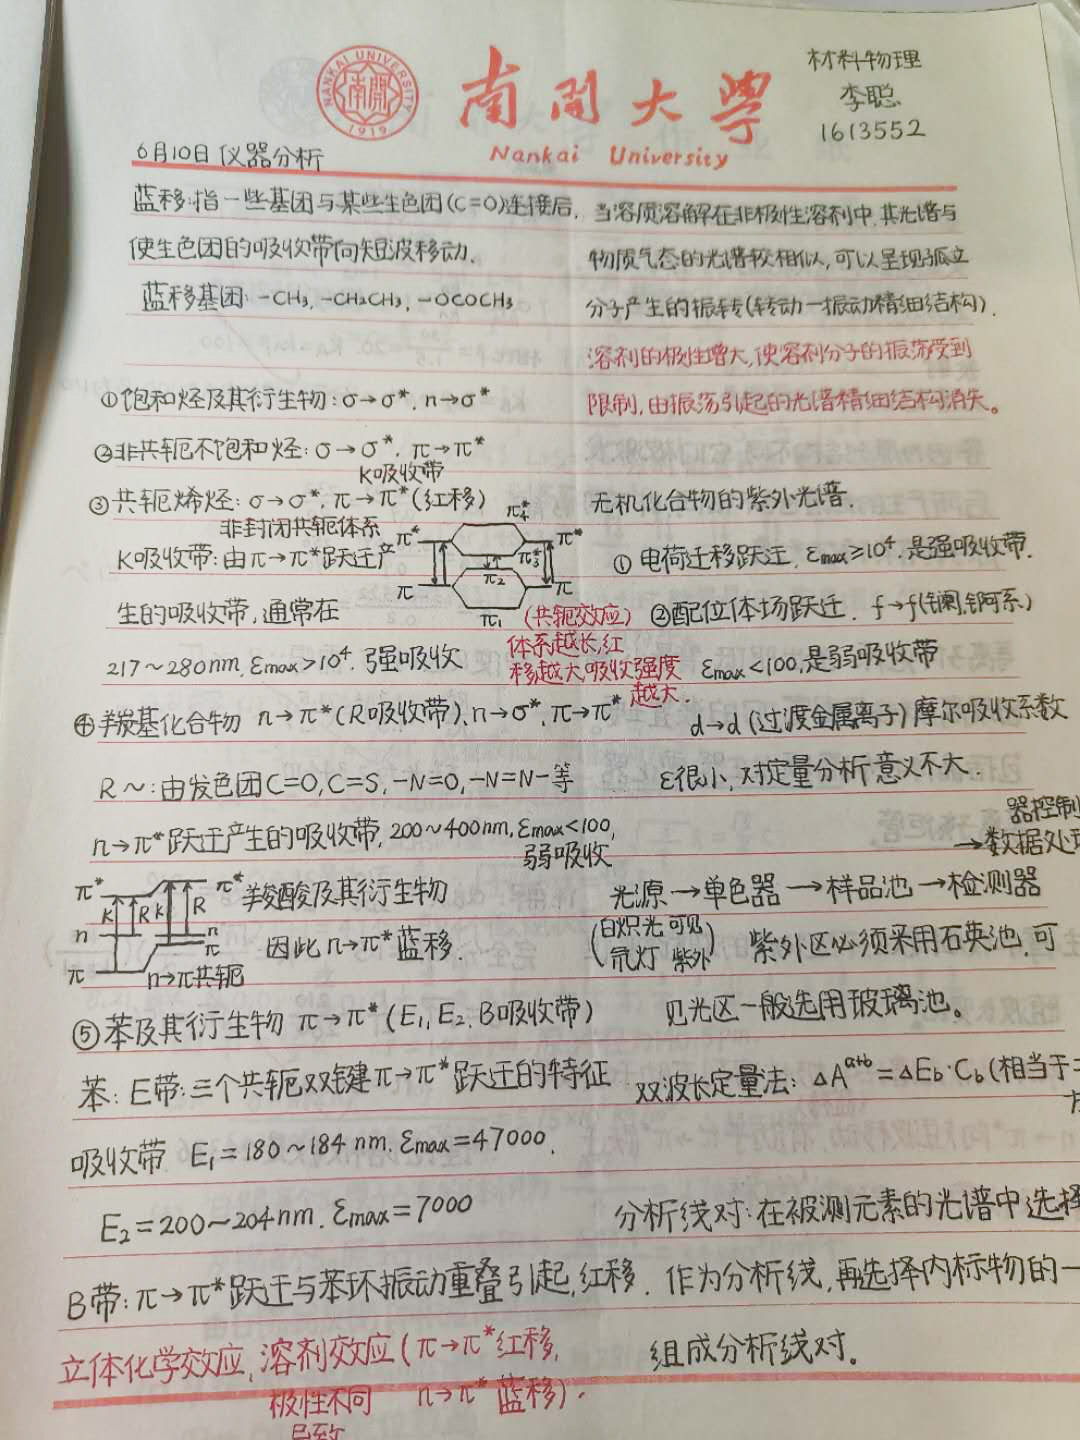 NANKAI UNIVERSITY
南開
1919
南開大學
Nankai University
材料物理
李聪
1613552
6月10日 仪器分析
蓝移:指一些基团与某些生色团(C=O)连接后,
使生色团的吸收带向短波移动.
蓝移基团: -CH3, -CH2CH3, -OCOCH3
①饱和烃及其衍生物: σ→σ*, n→σ*
②非共轭不饱和烃: σ→σ*, π→π*
K吸收带
③共轭烯烃: σ→σ*, π→π*(红移)
非封闭共轭体系
K吸收带: 由π→π*跃迁产
生的吸收带,通常在
217~280nm, εmax>10⁴. 强吸收
π* π4* π*
π3*
π2
π π
π1
(共轭效应)
体系越长,红
移越大,吸收强度
越大.
④羰基化合物 n→π*(R吸收带), n→σ*, π→π*
R~: 由发色团C=O, C=S, -N=O, -N=N-等
n→π*跃迁产生的吸收带, 200~400nm, εmax<100,
弱吸收
π* π*
K R K R
n n
π
π
n→π共轭
羧酸及其衍生物
因此n→π*蓝移.
⑤苯及其衍生物 π→π*(E1, E2, B吸收带)
苯: E带: 三个共轭双键π→π*跃迁的特征
吸收带 E1=180~184nm. εmax=47000.
E2=200~204nm. εmax=7000
B带: π→π*跃迁与苯环振动重叠引起,红移.
立体化学效应, 溶剂效应(π→π*红移,
极性不同 n→π*蓝移).
导致
当溶质溶解在非极性溶剂中,其光谱与
物质气态的光谱较相似,可以呈现孤立
分子产生的振转(转动-振动精细结构).
溶剂的极性增大,使溶剂分子的振荡受到
限制,由振荡引起的光谱精细结构消失。
无机化合物的紫外光谱.
①电荷迁移跃迁, εmax≥10⁴, 是强吸收带.
②配位体场跃迁. f→f(镧,锕系)
εmax<100,是弱吸收带
d→d(过渡金属离子)摩尔吸收系数
ε很小,对定量分析意义不大.
器控制
→数据处理
光源→单色器→样品池→检测器
(白炽光 可见
氘灯 紫外)
紫外区必须采用石英池,可
见光区一般选用玻璃池。
双波长定量法: ΔA^a+b=ΔEb·Cb(相当于
分析线对: 在被测元素的光谱中选择
作为分析线,再选择内标物的一
组成分析线对。